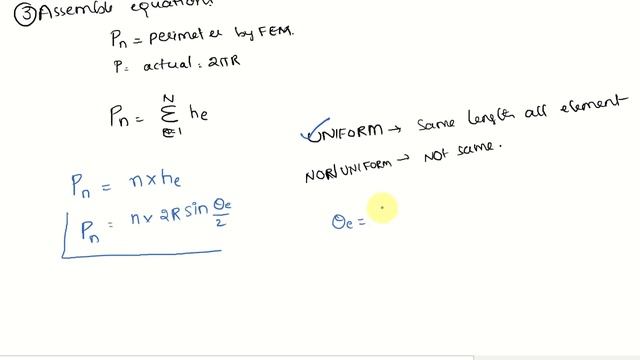 ③ Assemble equations
Pn = perimeter by FEM.
P = actual = 2πR
Pn = N Σ e=1 he
UNIFORM → Same length all element
NON/UNIFORM → NOT same.
Pn = n × he
Pn = n × 2R sin θe/2
θe =